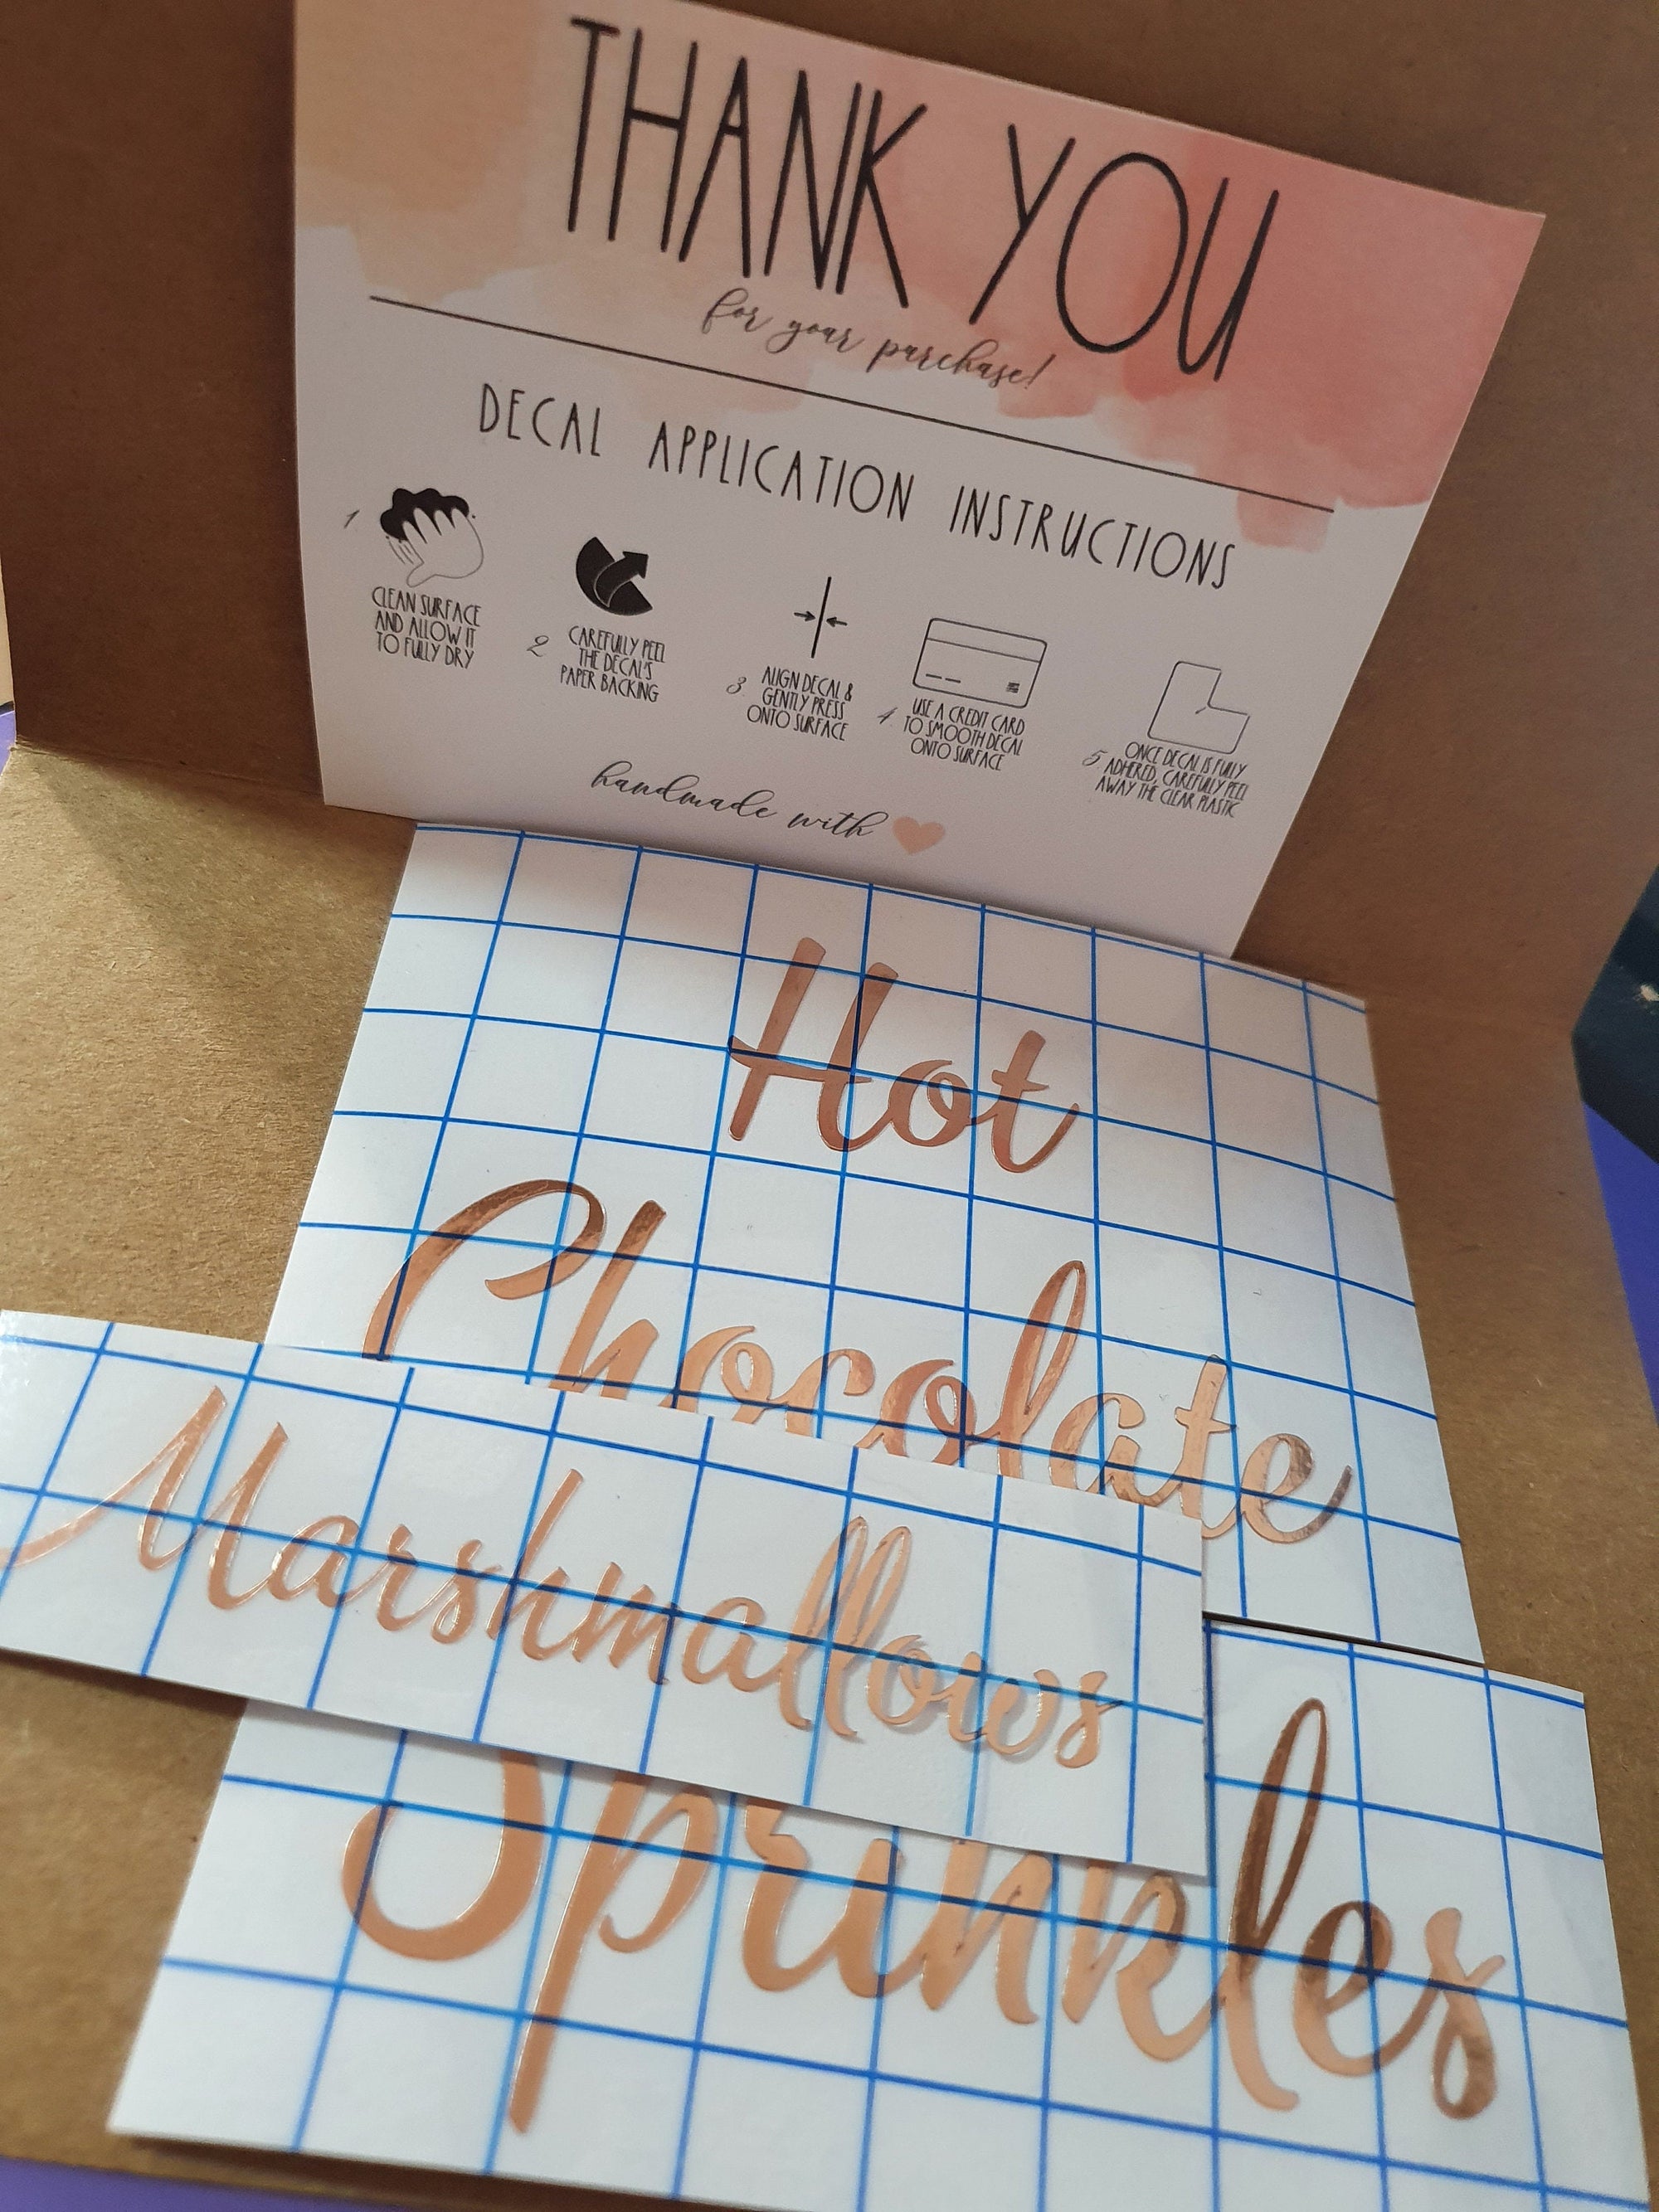 THANK YOU
for your purchase!
DECAL APPLICATION INSTRUCTIONS
1
CLEAN SURFACE
AND ALLOW IT
TO FULLY DRY
2
CAREFULLY PEEL
THE DECAL'S
PAPER BACKING
3
ALIGN DECAL &
GENTLY PRESS
ONTO SURFACE
4
USE A CREDIT CARD
TO SMOOTH DECAL
ONTO SURFACE
5
ONCE DECAL IS FULLY
ADHERED, CAREFULLY PEEL
AWAY THE CLEAR PLASTIC
handmade with
Hot
Chocolate
Marshmallows
Sprinkles